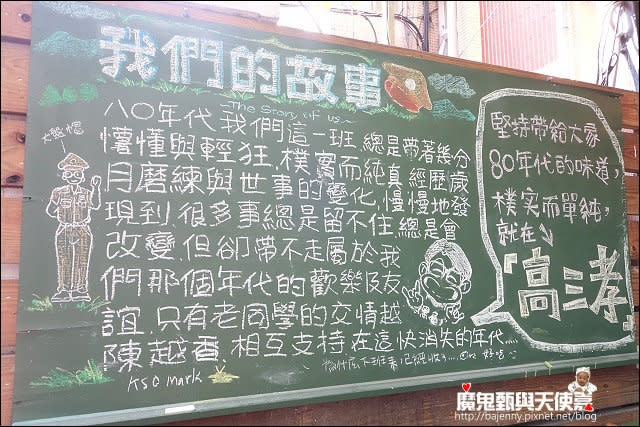 我們的故事
The Story of us~
大盤帽
八○年代我們這一班，總是帶著幾分
懵懂與輕狂，樸實而純真，經歷歲
月磨練與世事的變化，慢慢地發
現到，很多事總是留不住，總是會
改變，但卻帶不走屬於我
們那個年代的歡樂及友
誼，只有老同學的交情越
陳越香，相互支持在這快消失的年代……
KSC MARK
堅持帶給大家
80年代的味道，
樸實而單純，
就在
「高三孝」
魔鬼甄與天使嘉
http://bajenny.pixnet.net/blog